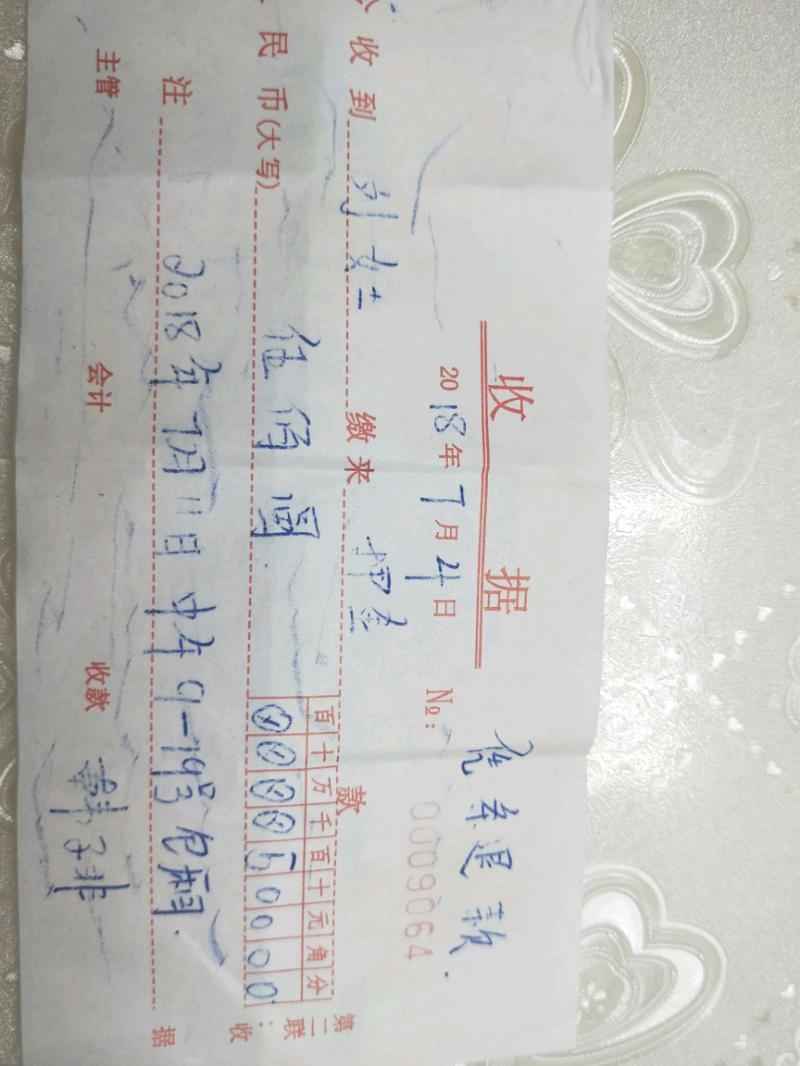 收 据
凭条退款.
2018年7月4日 №: 0009064
收到 刘女士 缴来 押金 款
民币(大写) 伍佰圆 百十万千百十元角分
50000
注 2018年7月11日中午9-19号包厢.
主管 会计 收款
第二联:收据